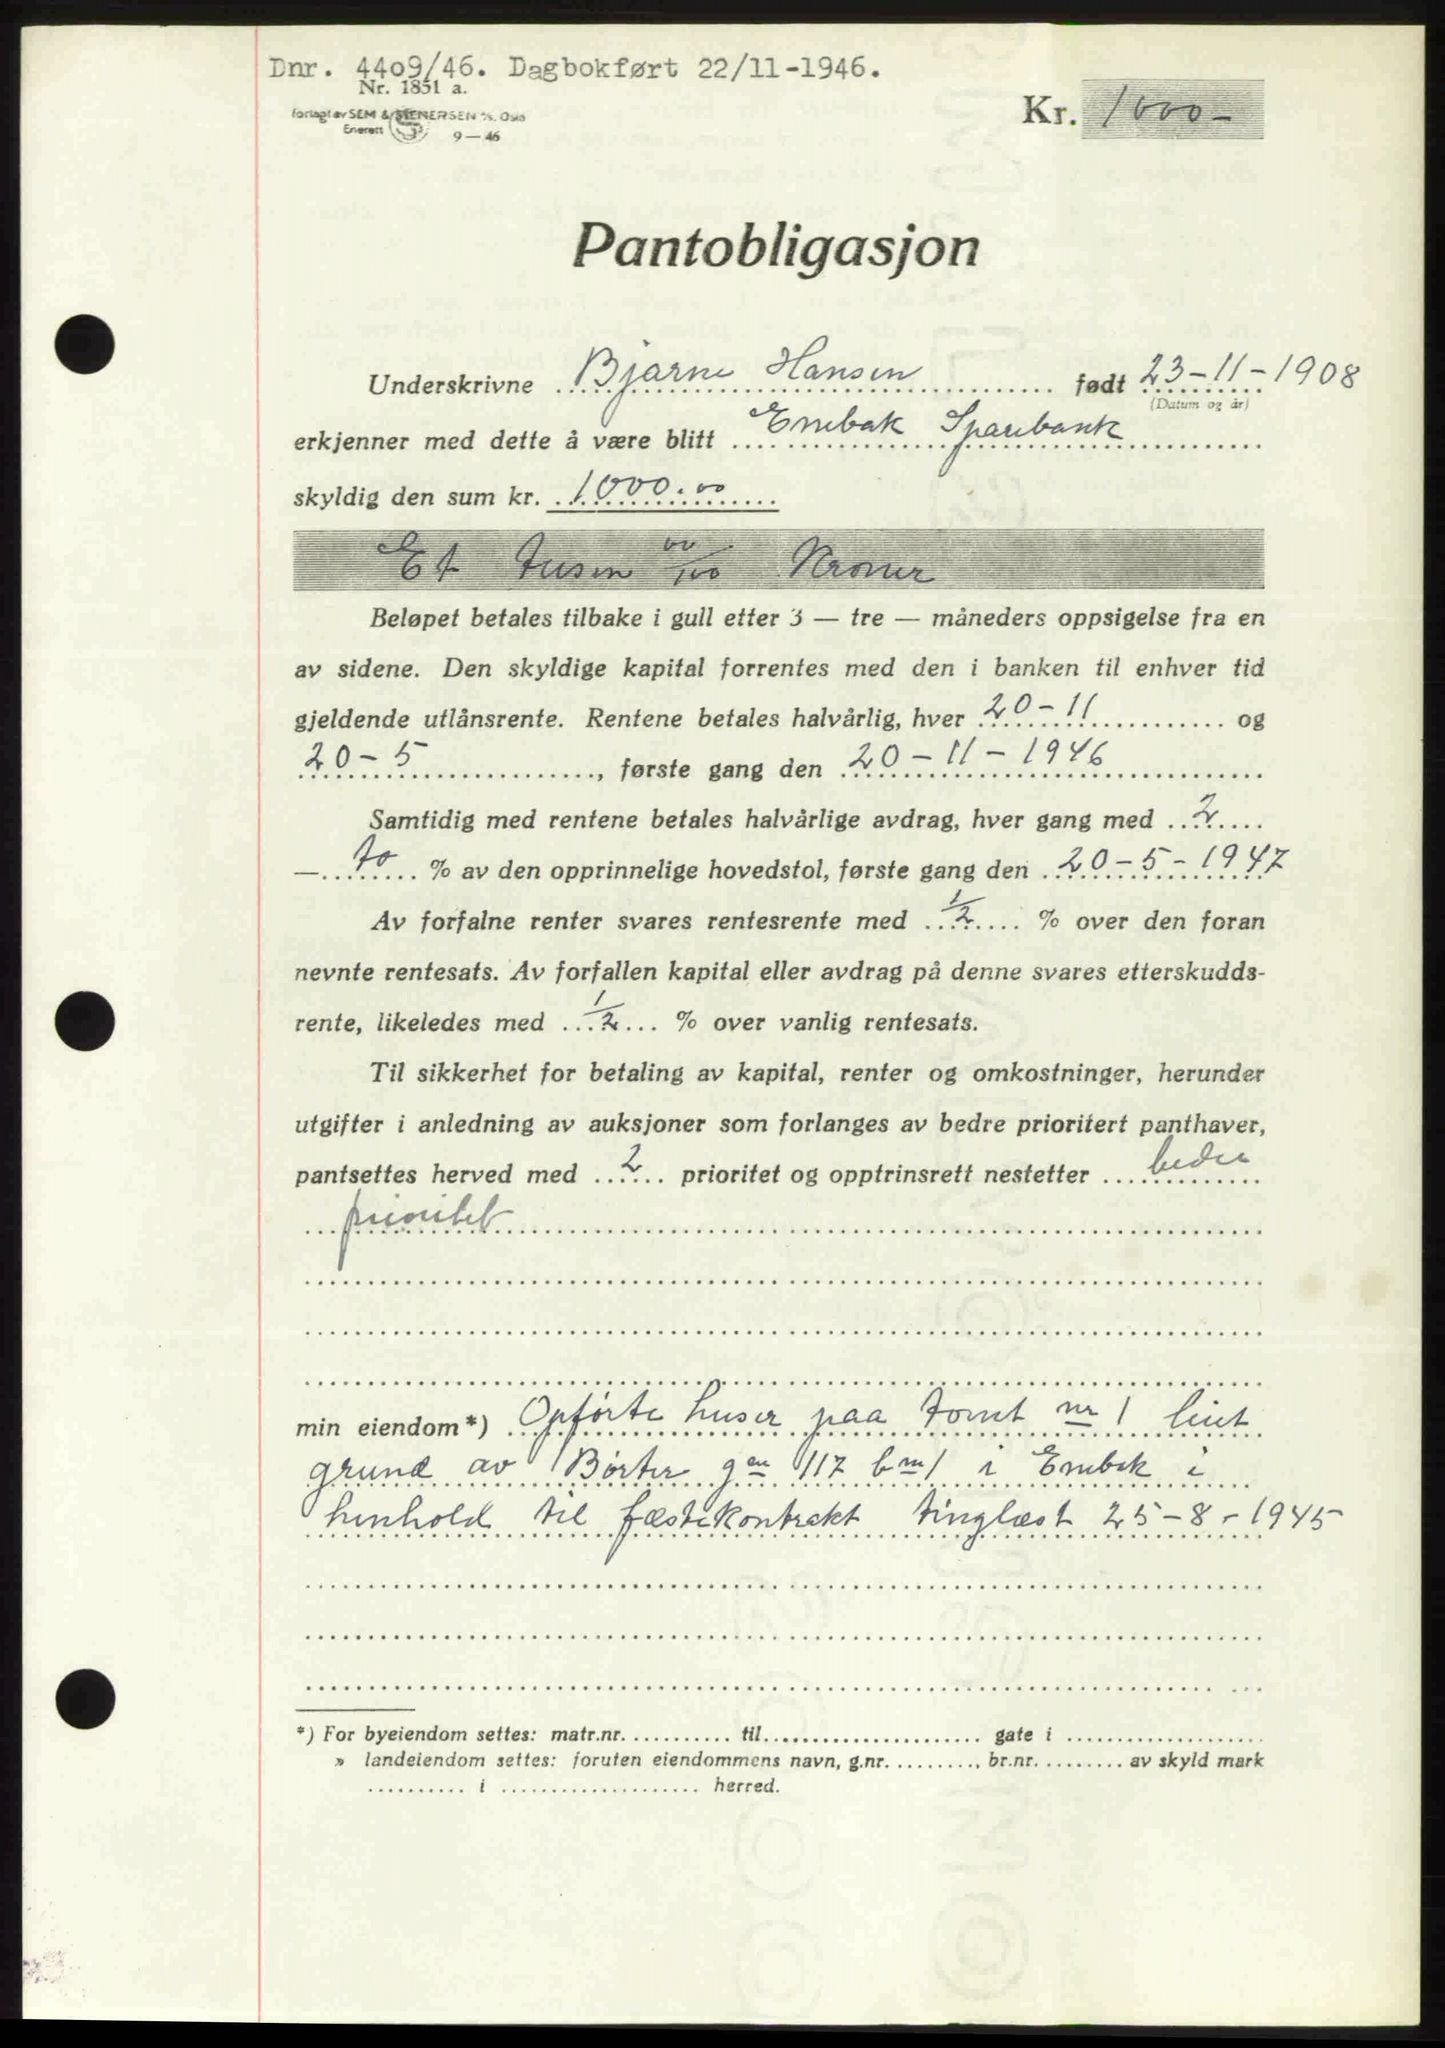 Dnr. 4409/46. Dagbokført 22/11-1946.
Nr. 1851 a.
forlagt av SEM & STENERSEN A/S. Oslo
Enerett 9—46
Kr. 1000-
Pantobligasjon
Underskrivne Bjarne Hansen født 23-11-1908
(Datum og år)
erkjenner med dette å være blitt Enebak Sparebank
skyldig den sum kr. 1000.00
Et tusen 00/100 Kroner
Beløpet betales tilbake i gull etter 3 — tre — måneders oppsigelse fra en
av sidene. Den skyldige kapital forrentes med den i banken til enhver tid
gjeldende utlånsrente. Rentene betales halvårlig, hver 20-11 og
20-5, første gang den 20-11-1946
Samtidig med rentene betales halvårlige avdrag, hver gang med 2
— to % av den opprinnelige hovedstol, første gang den 20-5-1947
Av forfalne renter svares rentesrente med 1/2 % over den foran
nevnte rentesats. Av forfallen kapital eller avdrag på denne svares etterskudds-
rente, likeledes med 1/2 % over vanlig rentesats.
Til sikkerhet for betaling av kapital, renter og omkostninger, herunder
utgifter i anledning av auksjoner som forlanges av bedre prioritert panthaver,
pantsettes herved med 2 prioritet og opptrinsrett nestetter bedre
prioritet
min eiendom*) Opførte huser paa tomt nr 1 leiet
grund av Børter gen 117 bnr 1 i Enebak i
henhold til fæstekontrakt tinglæst 25-8-1945
*) For byeiendom settes: matr.nr. ........... til ...................... gate i ....................
» landeiendom settes: foruten eiendommens navn, g.nr. ........., br.nr. ......... av skyld mark
.......... i .................... herred.